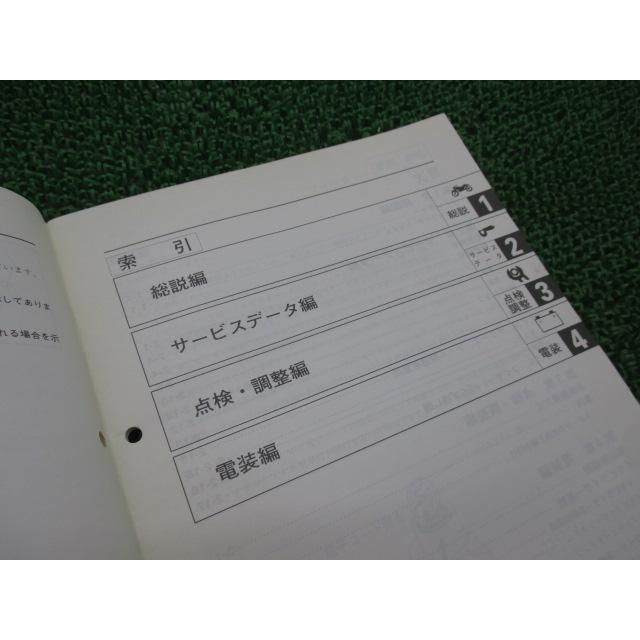 います。
してありま
れる場合を示
索 引
総説編
総説
1
サービスデータ編
サービス
データ
2
点検・調整編
点検
調整
3
電装編
電装
4